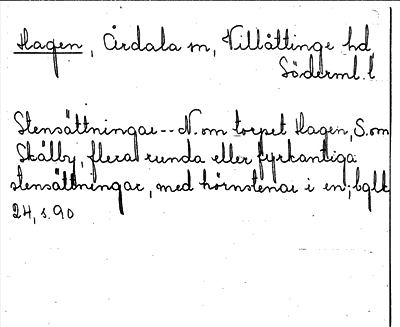 Hagen, Årdala sn, Villåttinge hd,
Söderml. l
Stensättningar -- N. om torpet Hagen, S. om
Skälby, flera runda eller fyrkantiga
stensättningar, med hörnstenar i en; bglt
24, s. 90